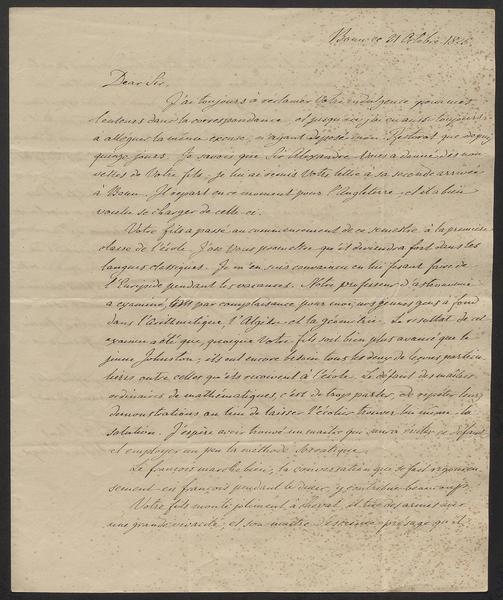 Bonn ce 21 Octobre 1826.
Dear Sir,
J'ai toujours à réclamer Votre indulgence pour mes
lenteurs dans la correspondance, et jusqu'ici j'ai eu aussi toujours
à alléguer la même excuse, n'ayant déposé mon Rectorat que depuis
quinze jours. Je savois que Sir Alexandre Vous a donné des nou-
velles de Votre fils, je lui ai remis Votre lettre à sa seconde arrivée
à Bonn. Il repart en ce moment pour l'Angleterre, et il a bien
voulu se charger de celle-ci.
Votre fils a passé au commencement de ce semestre à la première
classe de l'école. J'ose Vous promettre qu'il deviendra fort dans les
langues classiques. Je m'en suis convaincu en lui faisant faire de
l'Euripide pendant les vacances. Notre professeur d'astronomie
a examiné, par complaisance pour moi, nos jeunes gens à fond
dans l'Arithmétique, l'Algèbre et la géométrie. Le résultat de cet
examen a été que, quoique Votre fils soit bien plus avancé que le
jeune Johnston, ils ont encore besoin tous les deux de leçons particu-
lières outre celles qu'ils reçoivent à l'école. Le défaut des maîtres
ordinaires de mathématiques, c'est de trop parler, de répéter leurs
démonstrations au lieu de laisser l'écolier trouver lui même la
solution. J'espère avoir trouvé un maître qui saura éviter ce défaut
et employer un peu la méthode Socratique.
Le françois marche bien; la conversation qui se fait rigoureu-
sement en françois pendant le diner, y contribue beaucoup.
Votre fils monte joliment à cheval, il tire des armes avec
une grande vivacité, et son maître d'escrime présage qu'il